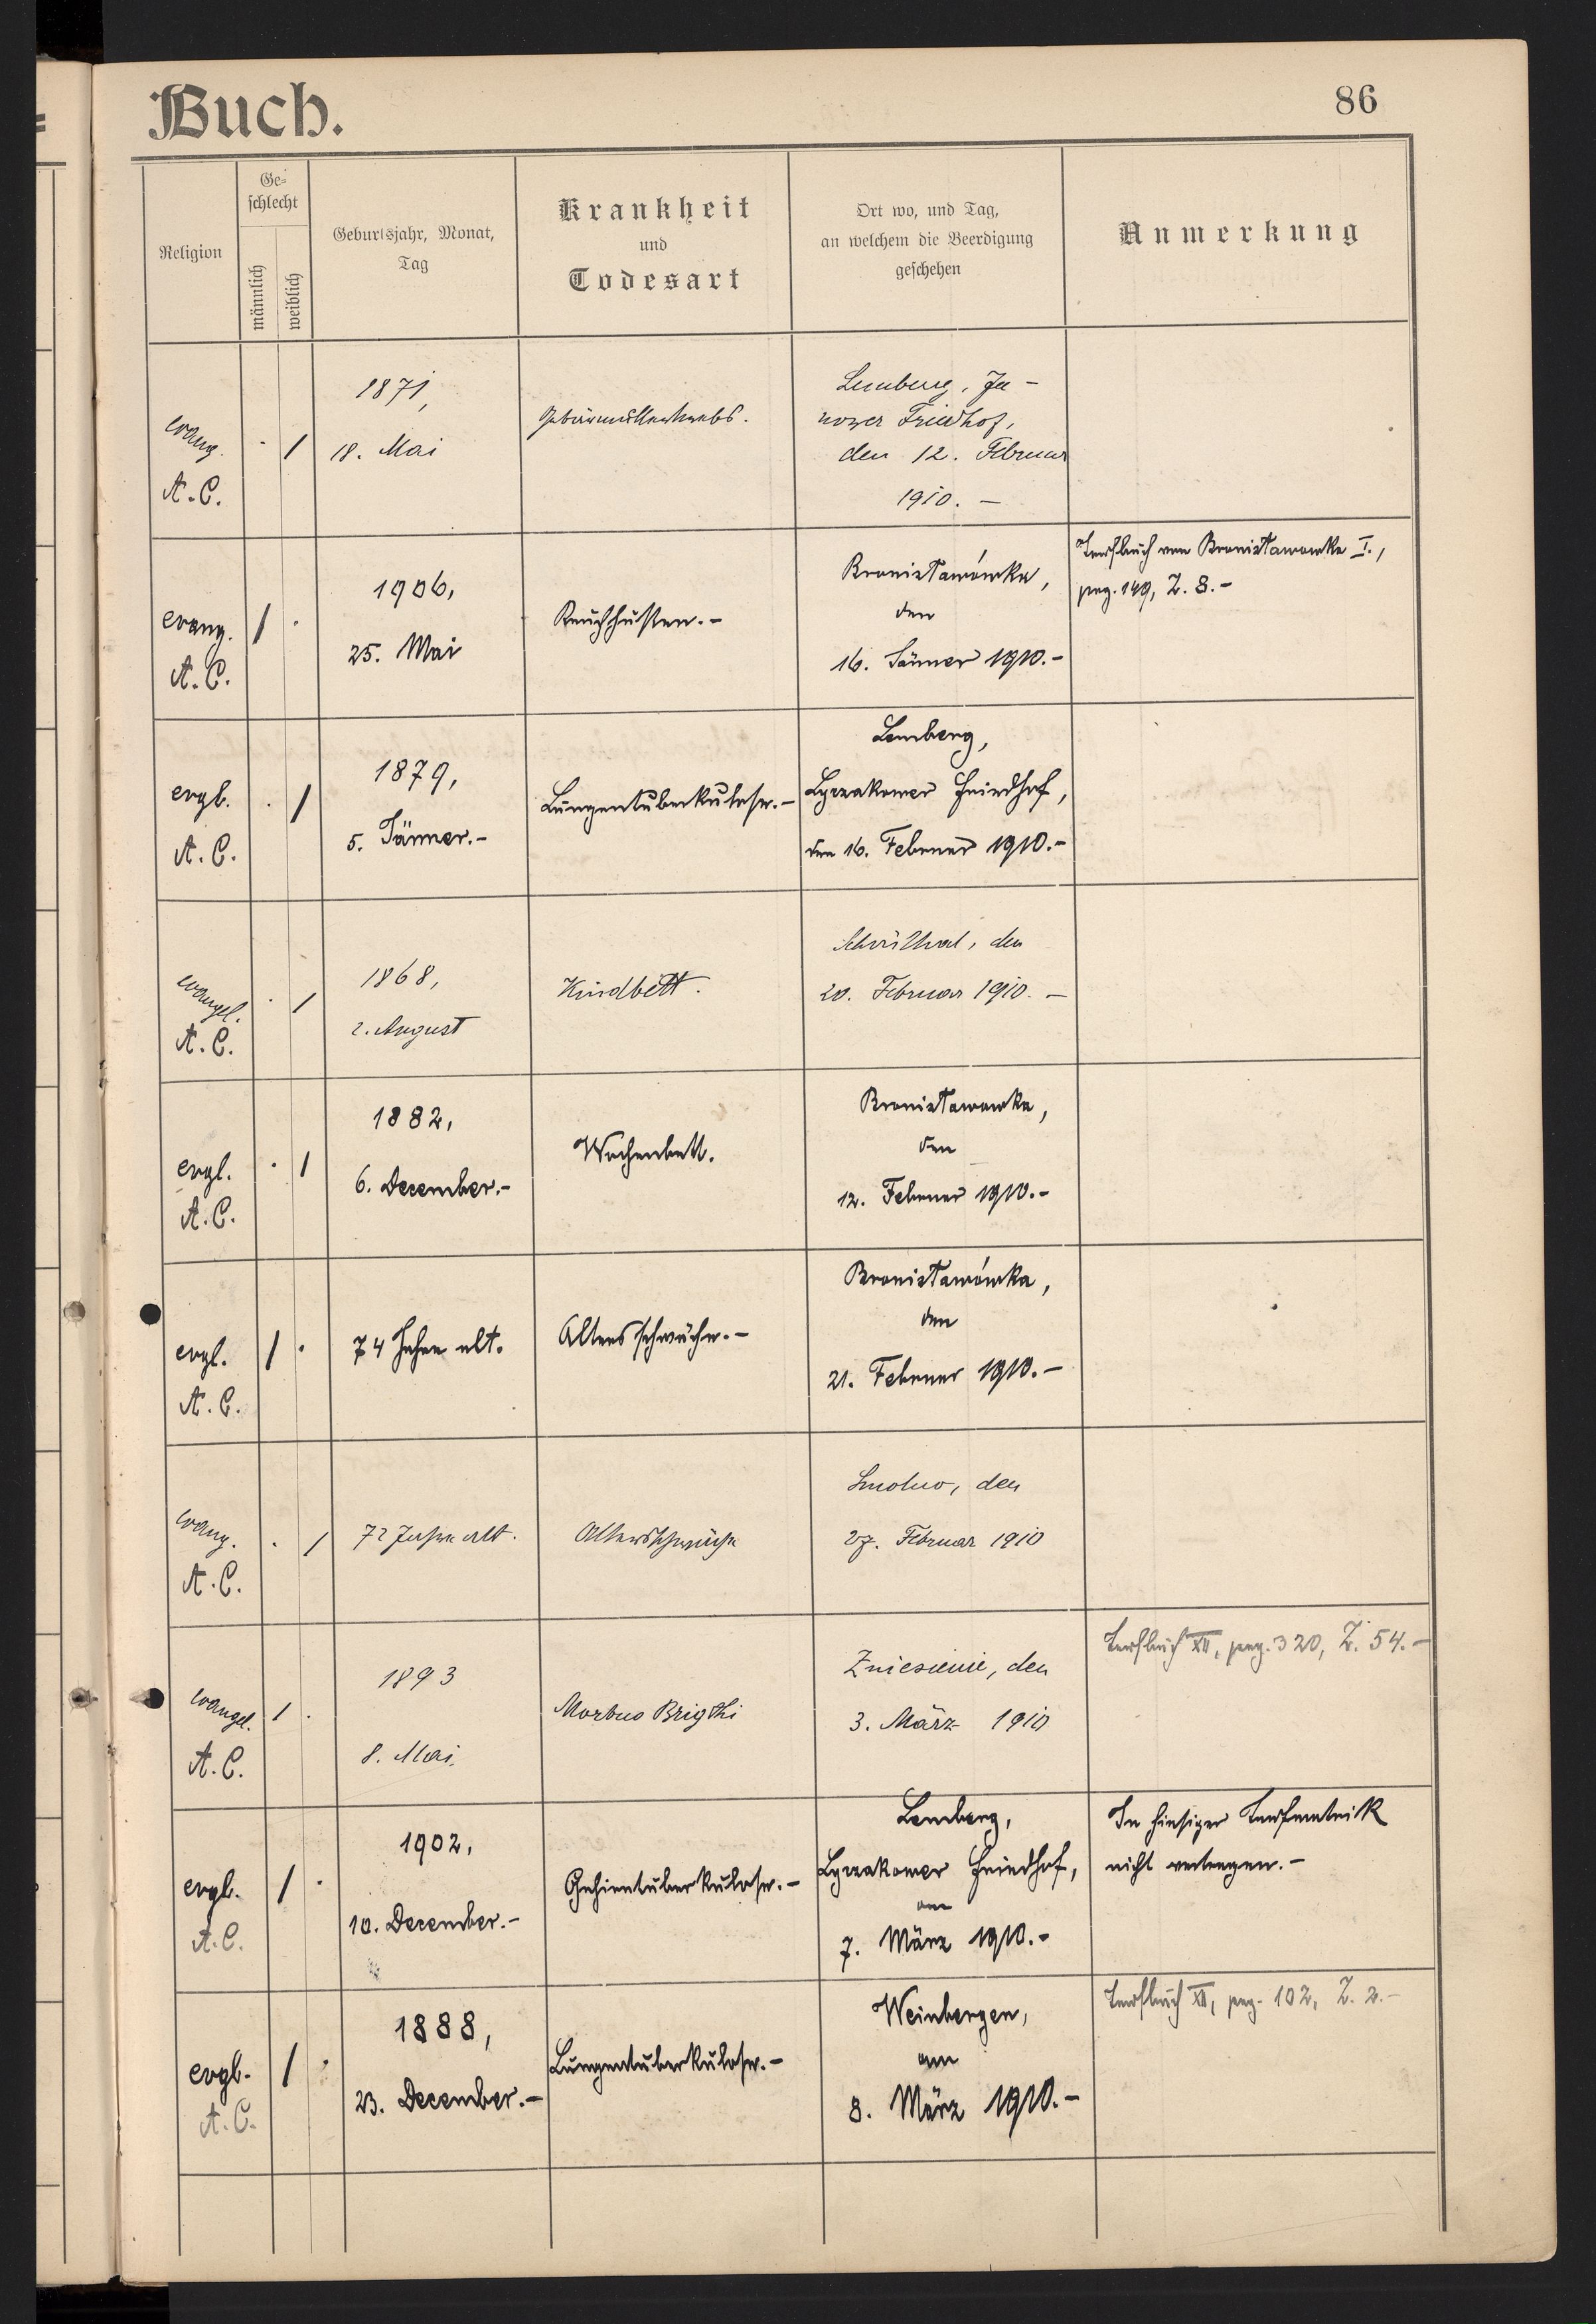 Buch.
86
Religion
Ge-
schlecht
männlich
weiblich
Geburtsjahr, Monat,
Tag
Krankheit
und
Todesart
Ort wo, und Tag,
an welchem die Beerdigung
geschehen
Anmerkung
evang.
A. C.
. 1
1871,
18. Mai
Gebärmutterkrebs.
Lemberg, Ja-
nower Friedhof,
den 12. Februar
1910. —
evang.
A. C.
1 .
1906,
25. Mai
Keuchhusten.-
Bronisławówka,
den
16. Jänner 1910.-
Taufbuch von Bronisławowka I.,
pag. 149, Z. 8.-
evgl.
A. C.
. 1
1879,
5. Jänner.-
Lungentuberkulose.-
Lemberg,
Lyczakower Friedhof,
den 16. Februar 1910.-
evangel.
A. C.
. 1
1868,
2. August
Kindbett.
Schönthal, den
20. Februar 1910. —
evgl.
A. C.
. 1
1882,
6. December.-
Wochenbett.
Bronisławowka,
den
12. Februar 1910.-
evgl.
A. C.
1 .
74 Jahre alt.
Altersschwäche.-
Bronisławówka,
den
21. Februar 1910.-
evang.
A. C.
. 1
72 Jahre alt.
Altersschwäche
Smolno, den
27. Februar 1910
evangel.
A. C.
1 .
1893
8. Mai.
Morbus Brigthi
Zniesienie, den
3. März 1910
Taufbuch XII, pag. 320, Z. 54.-
evgl.
A. C.
1 .
1902,
10. December.-
Gehirntuberkulose.-
Lemberg,
Lyczakower Friedhof,
am
7. März 1910.-
In hiesiger Taufmatrik
nicht vertragen.-
evgl.
A. C.
1 .
1888,
23. December.-
Lungentuberkulose.-
Weinbergen,
am
8. März 1910.-
Taufbuch XII, pag. 102, Z. 2.-